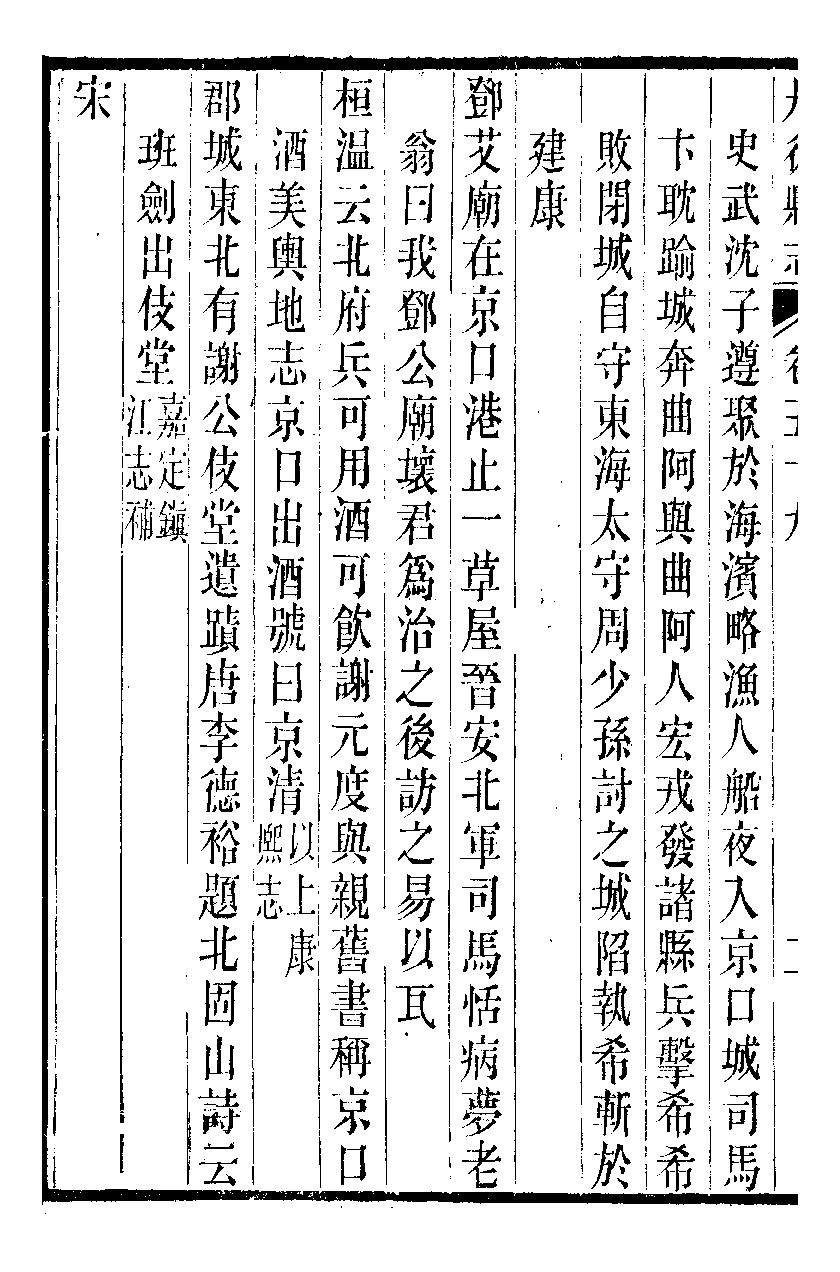 丹徒縣志 卷五十九 二
史武沈子遵聚於海濱略漁人船夜入京口城司馬
卞耽踰城奔曲阿與曲阿人宏戎發諸縣兵擊希希
敗閉城自守東海太守周少孫討之城陷執希斬於
建康
鄧艾廟在京口港止一草屋晉安北軍司馬恬病夢老
翁曰我鄧公廟壞君爲治之後訪之易以瓦
桓温云北府兵可用酒可飲謝元度與親舊書稱京口
酒美輿地志京口出酒號曰京清以上康熙志
郡城東北有謝公伎堂遺蹟唐李德裕題北固山詩云
班劍出伎堂嘉定鎮江志補
宋